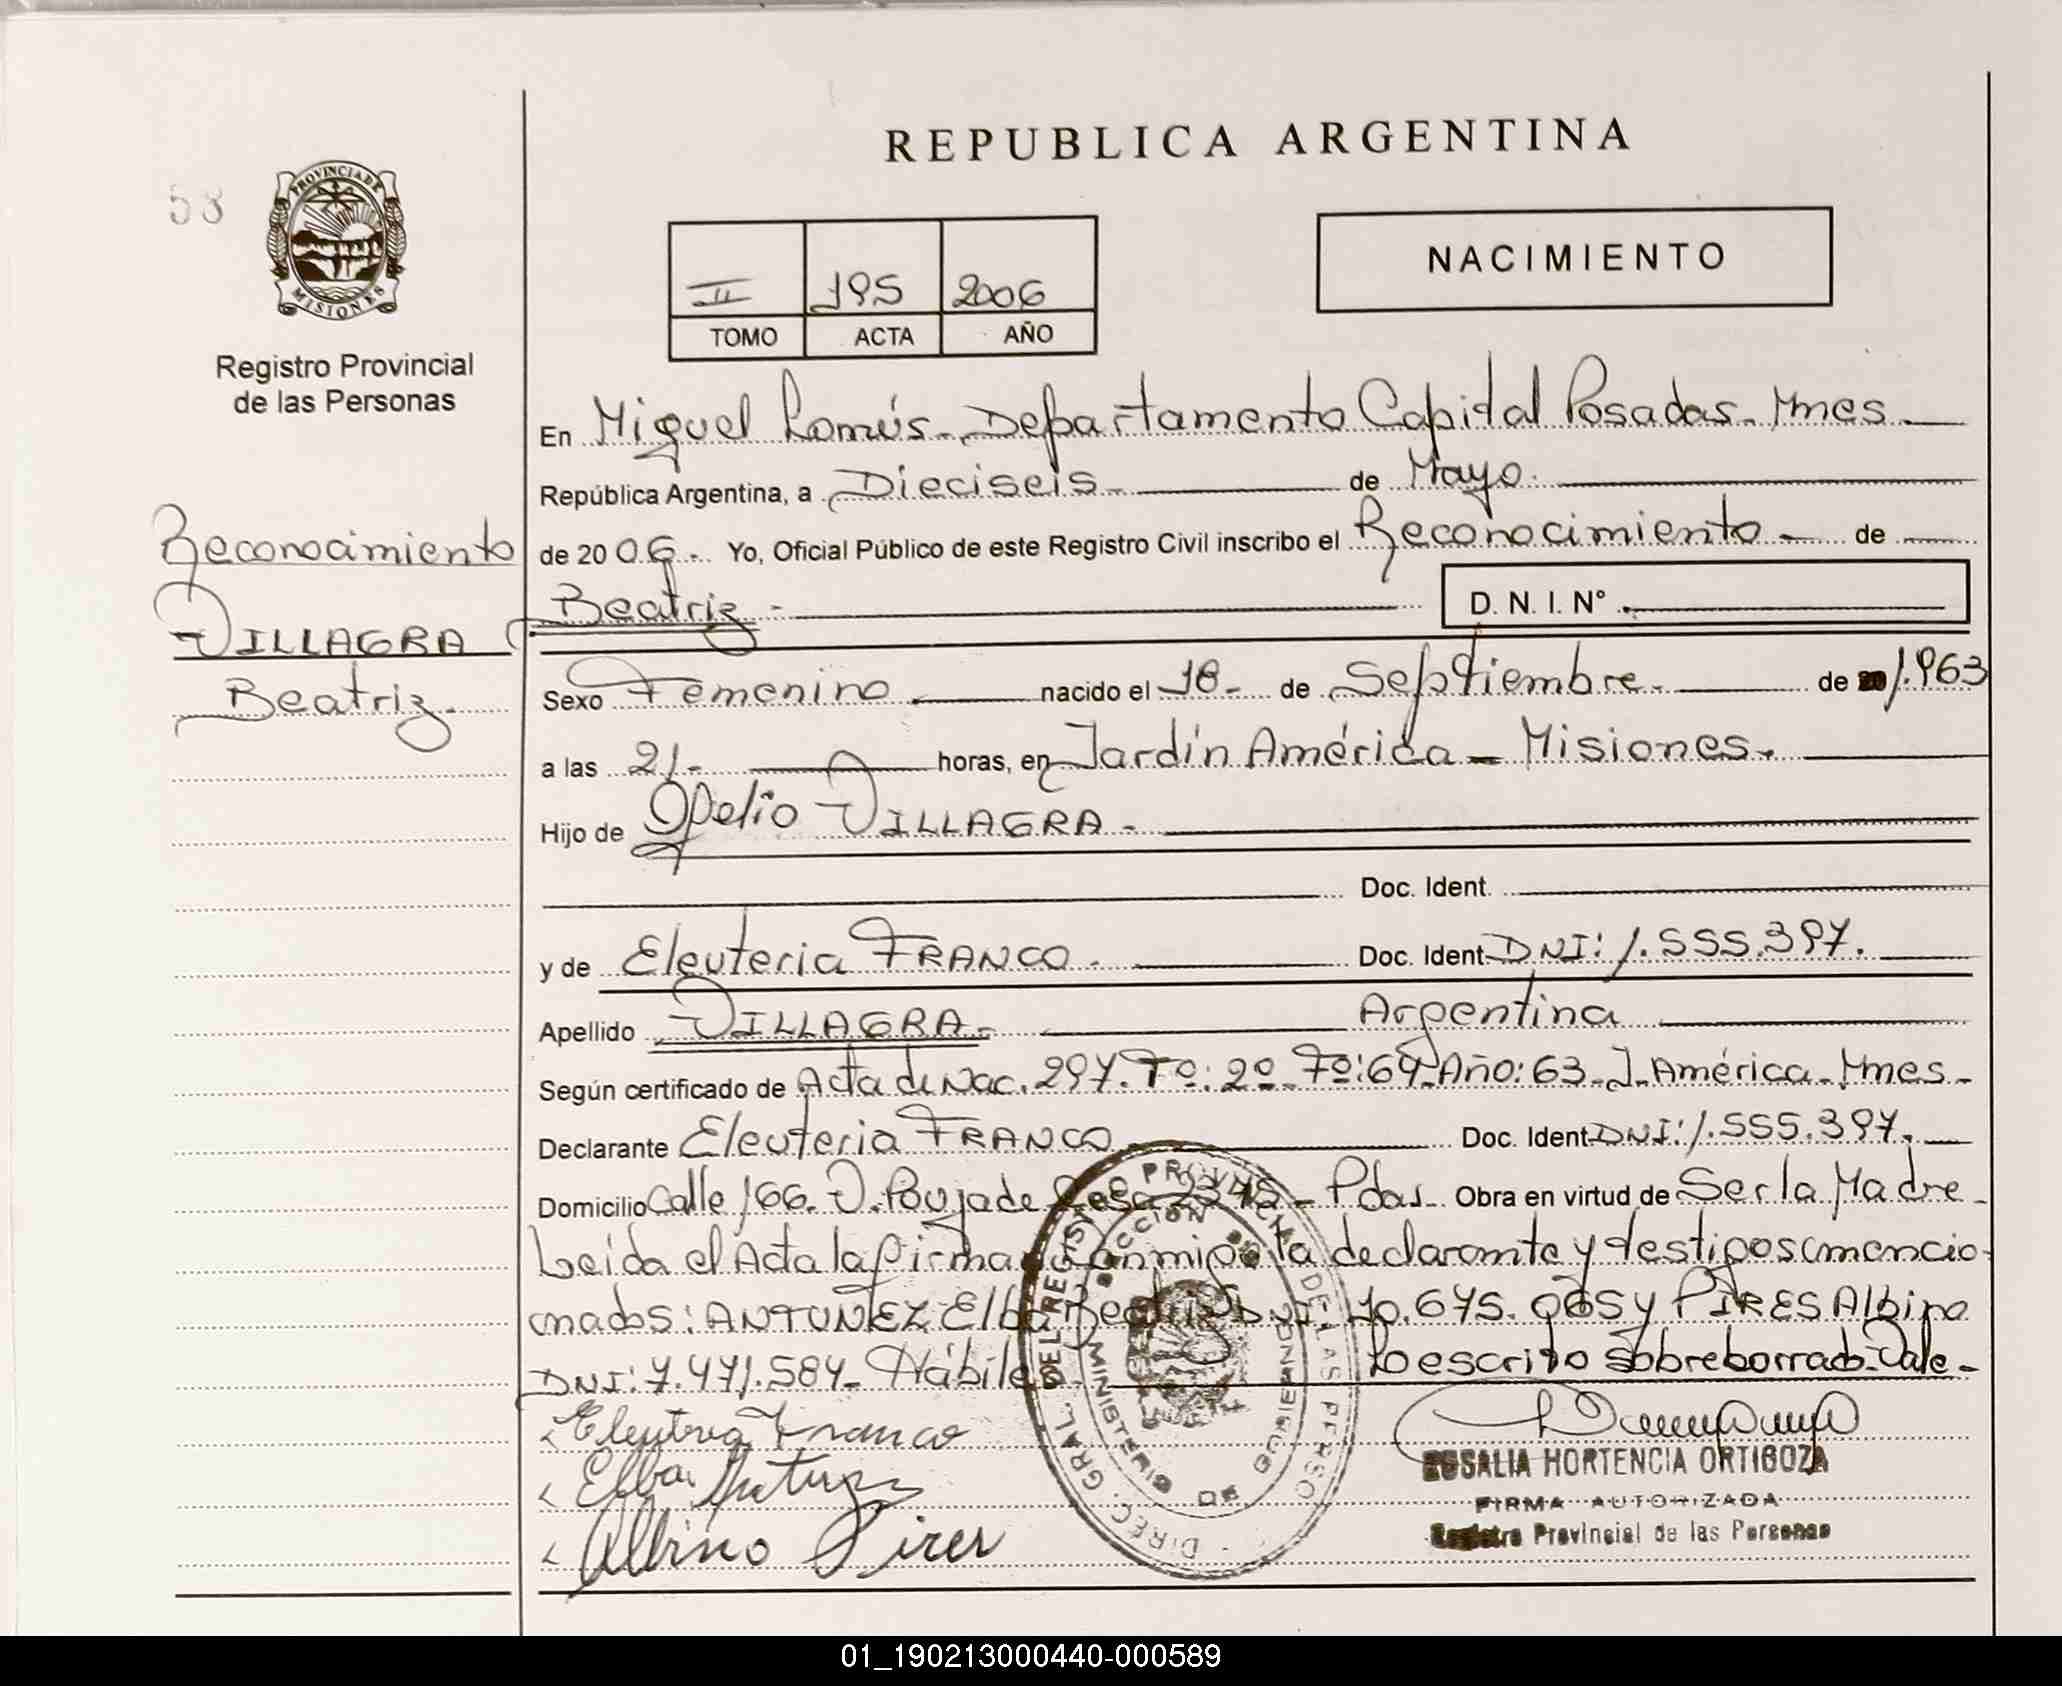 REPUBLICA ARGENTINA
53
PROVINCIA DE
MISIONES
NACIMIENTO
II 195 2006
TOMO ACTA AÑO
Registro Provincial
de las Personas
En Miguel Lanús - Departamento Capital Posadas - Mnes
República Argentina, a Dieciseis de Mayo
de 2006 - Yo, Oficial Público de este Registro Civil inscribo el Reconocimiento de
Beatriz - D. N. I. Nº
Reconocimiento
VILLAGRA
Beatriz
Sexo Femenino nacido el 18 - de Septiembre - de 1.963
a las 21 - horas, en Jardín América - Misiones -
Hijo de Ofelio VILLAGRA -
Doc. Ident.
y de Eleuteria FRANCO - Doc. Ident DNI: 1.555.397.
Apellido VILLAGRA - Argentina
Según certificado de Acta de Nac. 297. Tº: 2º Fº: 69 - Año: 63 - J. América - Mnes -
Declarante Eleuteria FRANCO Doc. Ident DNI: 1.555.397.
Domicilio Calle 166. V. Poujade Casa - Pdas - Obra en virtud de Ser la Madre -
Leída el Acta la firman conmigo la declarante y testigos mencio
nados: ANTUNEZ Elba Beatriz y PIRES Albino
DNI: 7.471.584 - Hábiles Lo escrito sobreborrado - Vale -
Eleuteria Franco
Elba Antunez
Albino Pires
DIREC. GRAL. DEL REGISTRO PROVINCIAL DE LAS PERSONAS
MINISTERIO DE GOBIERNO
ROSALIA HORTENCIA ORTIGOZA
FIRMA AUTORIZADA
Registro Provincial de las Personas
01_190213000440-000589